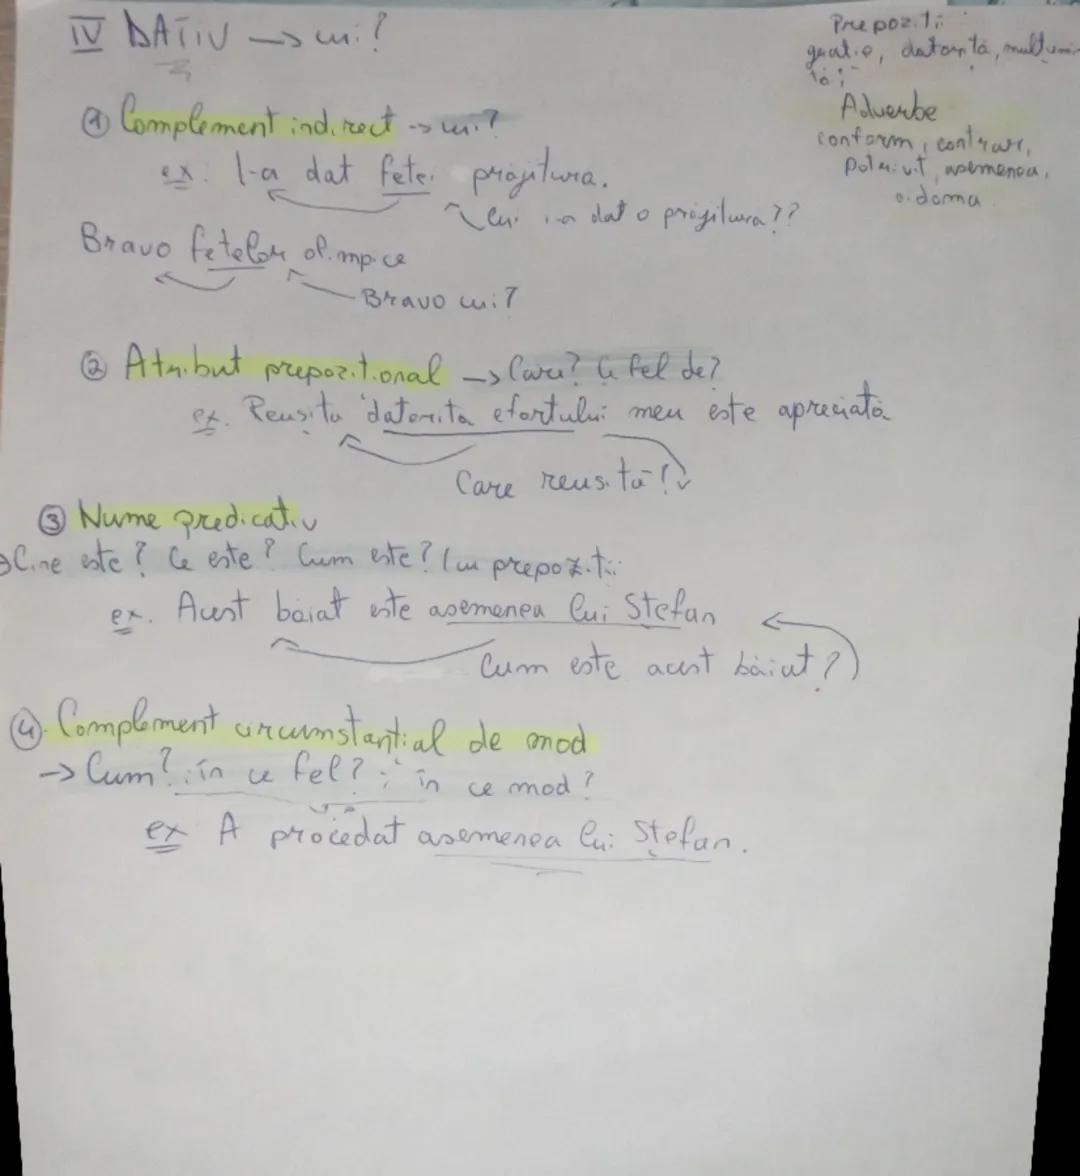 IV DATIV → cui?
Prepoziții
grație, datorită, mulțumi-
tă;
Adverbe
conform, contrar,
potrivit, asemenea,
aidoma
① Complement indirect → cui?
ex. I-a dat fetei prăjitura.
Cui i-a dat o prăjitura??
Bravo fetelor olimpice
Bravo cui?
② Atribut prepozițional → Care? Ce fel de?
ex. Reușita datorita efortului meu este apreciată
Care reușita?
③ Nume predicativ
→Cine este? Ce este? Cum este? / cu prepoziții
ex. Acest băiat este asemenea lui Ștefan
Cum este acest băiat?
④. Complement circumstanțial de mod
→ Cum? în ce fel? ; în ce mod?
ex A procedat asemenea lui Ștefan.